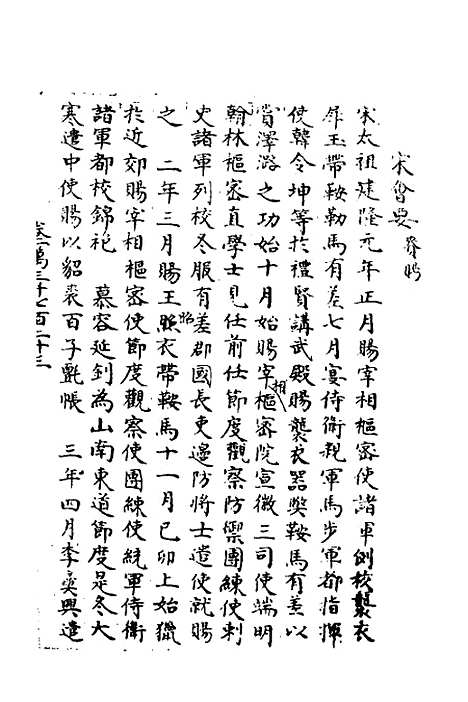 宋會要 賚賜
宋太祖建隆元年正月賜宰相樞密使諸軍列校襲衣
犀玉帶鞍勒馬有差七月宴侍衛親軍馬步軍都指揮
使韓令坤等於禮賢講武殿賜襲衣器獘鞍馬有差以
賞澤潞之功始十月始賜宰相樞密院宣徽三司使端明
翰林樞密直學士見任前任節度觀察防禦團練使刺
史諸軍列校冬服有差郡國長吏邊防將士遣使就賜
之 二年三月賜王昭衣帶鞍馬十一月己卯上始獵
於近郊賜宰相樞密使節度觀察使團練使統軍侍衛
諸軍都校錦袍 慕容延釗為山南東道節度是冬大
寒遣中使賜以貂裘百子氈帳 三年四月李彝興遣
卷一萬三千七百二十三